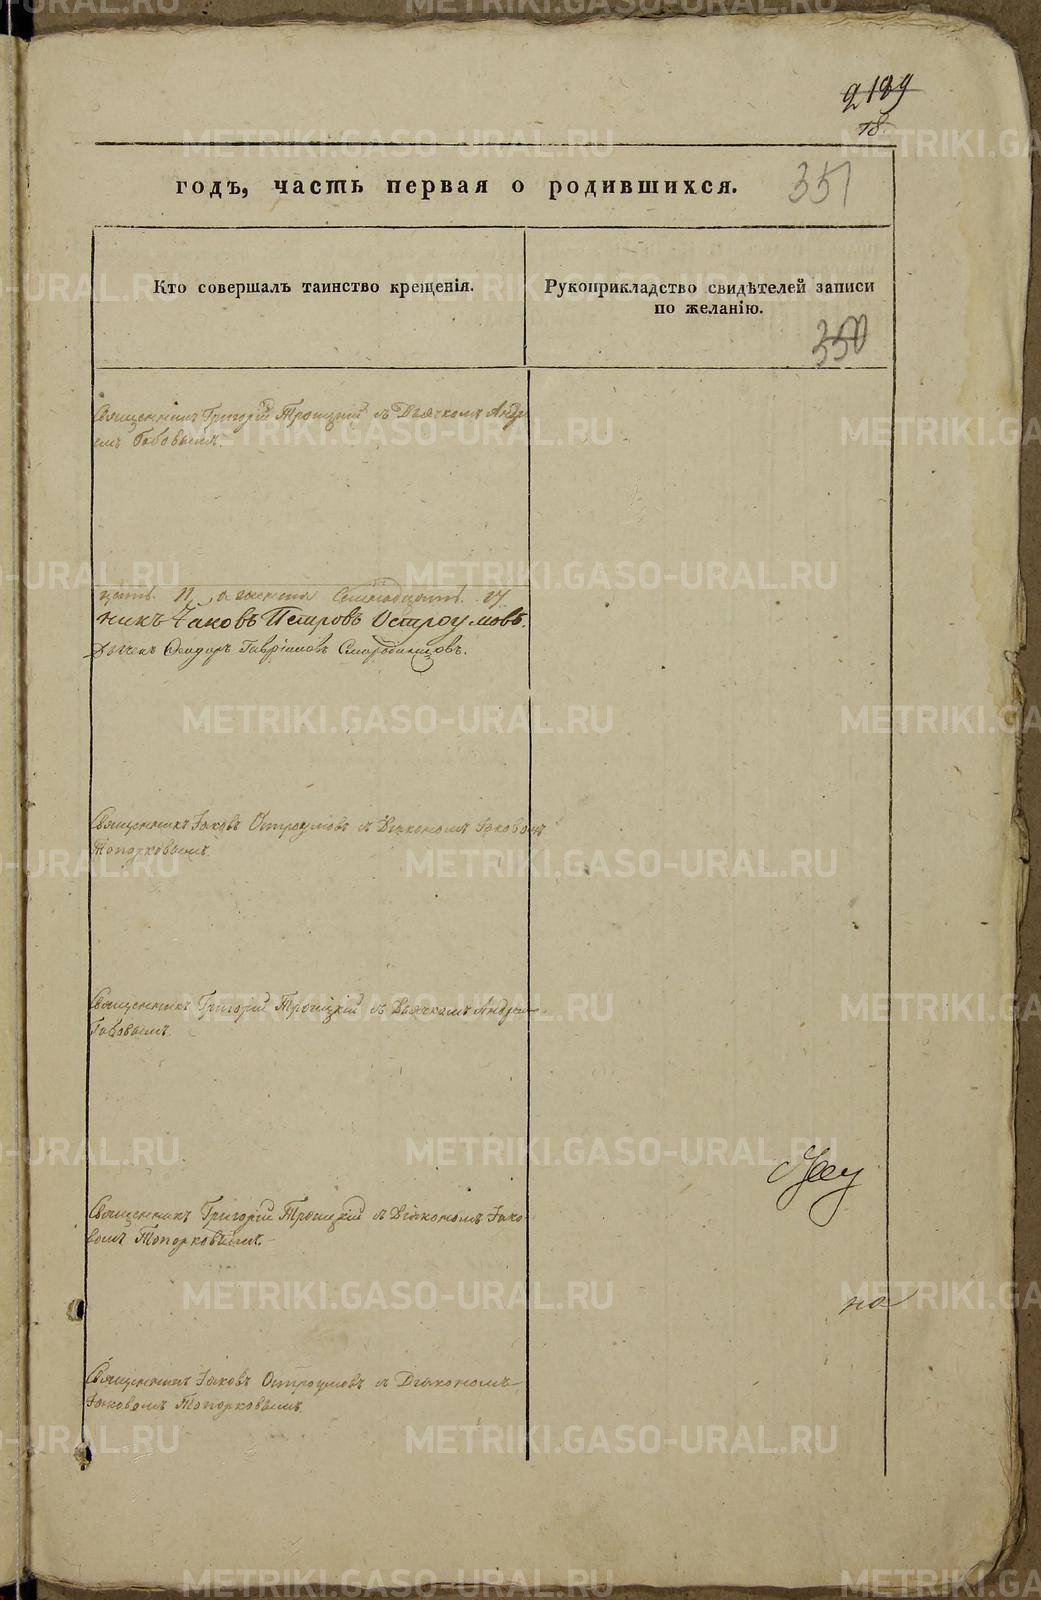 2189
18.
годъ, часть первая о родившихся.
351
Кто совершалъ таинство крещенія.
Рукоприкладство свидѣтелей записи
по желанію.
350
Священникъ Григорій Троицкій съ Дьячкомъ Андре
емъ Бабовымъ.
цать 11, а женска Семнадцать 17
никъ Іаковъ Петровъ Остроумовъ.
Дьячек Ѳеодоръ Гавріиловъ Смородинцовъ.
Священникъ Іаковъ Остроумовъ съ Діакономъ Іаковомъ
Топорковымъ.
Священникъ Григорій Троицкій съ Дьячкомъ Андреем
Бабовымъ.
Священникъ Григорій Троицкій съ Діакономъ Іако
вомъ Топорковымъ.
на
Священникъ Іаковъ Остроумовъ съ Діакономъ
Іаковомъ Топорковымъ.
METRIKI.GASO-URAL.RU